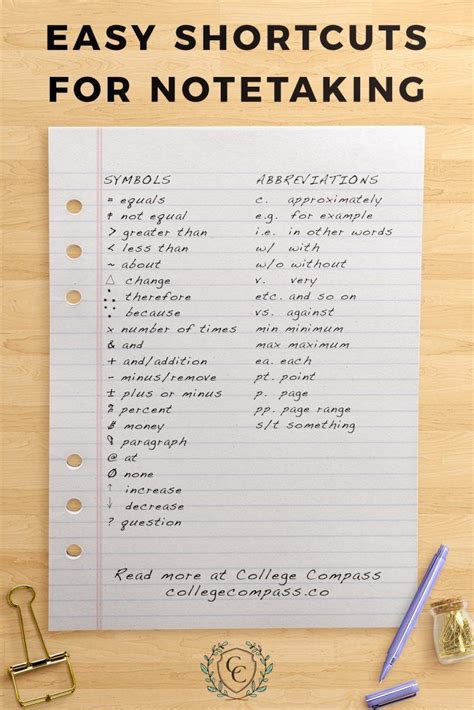 EASY SHORTCUTS
FOR NOTETAKING
SYMBOLS
= equals
≠ not equal
> greater than
< less than
~ about
△ change
∴ therefore
∵ because
x number of times
& and
+ and/addition
- minus/remove
± plus or minus
% percent
$ money
¶ paragraph
@ at
Ø none
↑ increase
↓ decrease
? question
ABBREVIATIONS
c. approximately
e.g. for example
i.e. in other words
w/ with
w/o without
v. very
etc. and so on
vs. against
min minimum
max maximum
ea. each
pt. point
p. page
pp. page range
s/t something
Read more at College Compass
collegecompass.co
CC